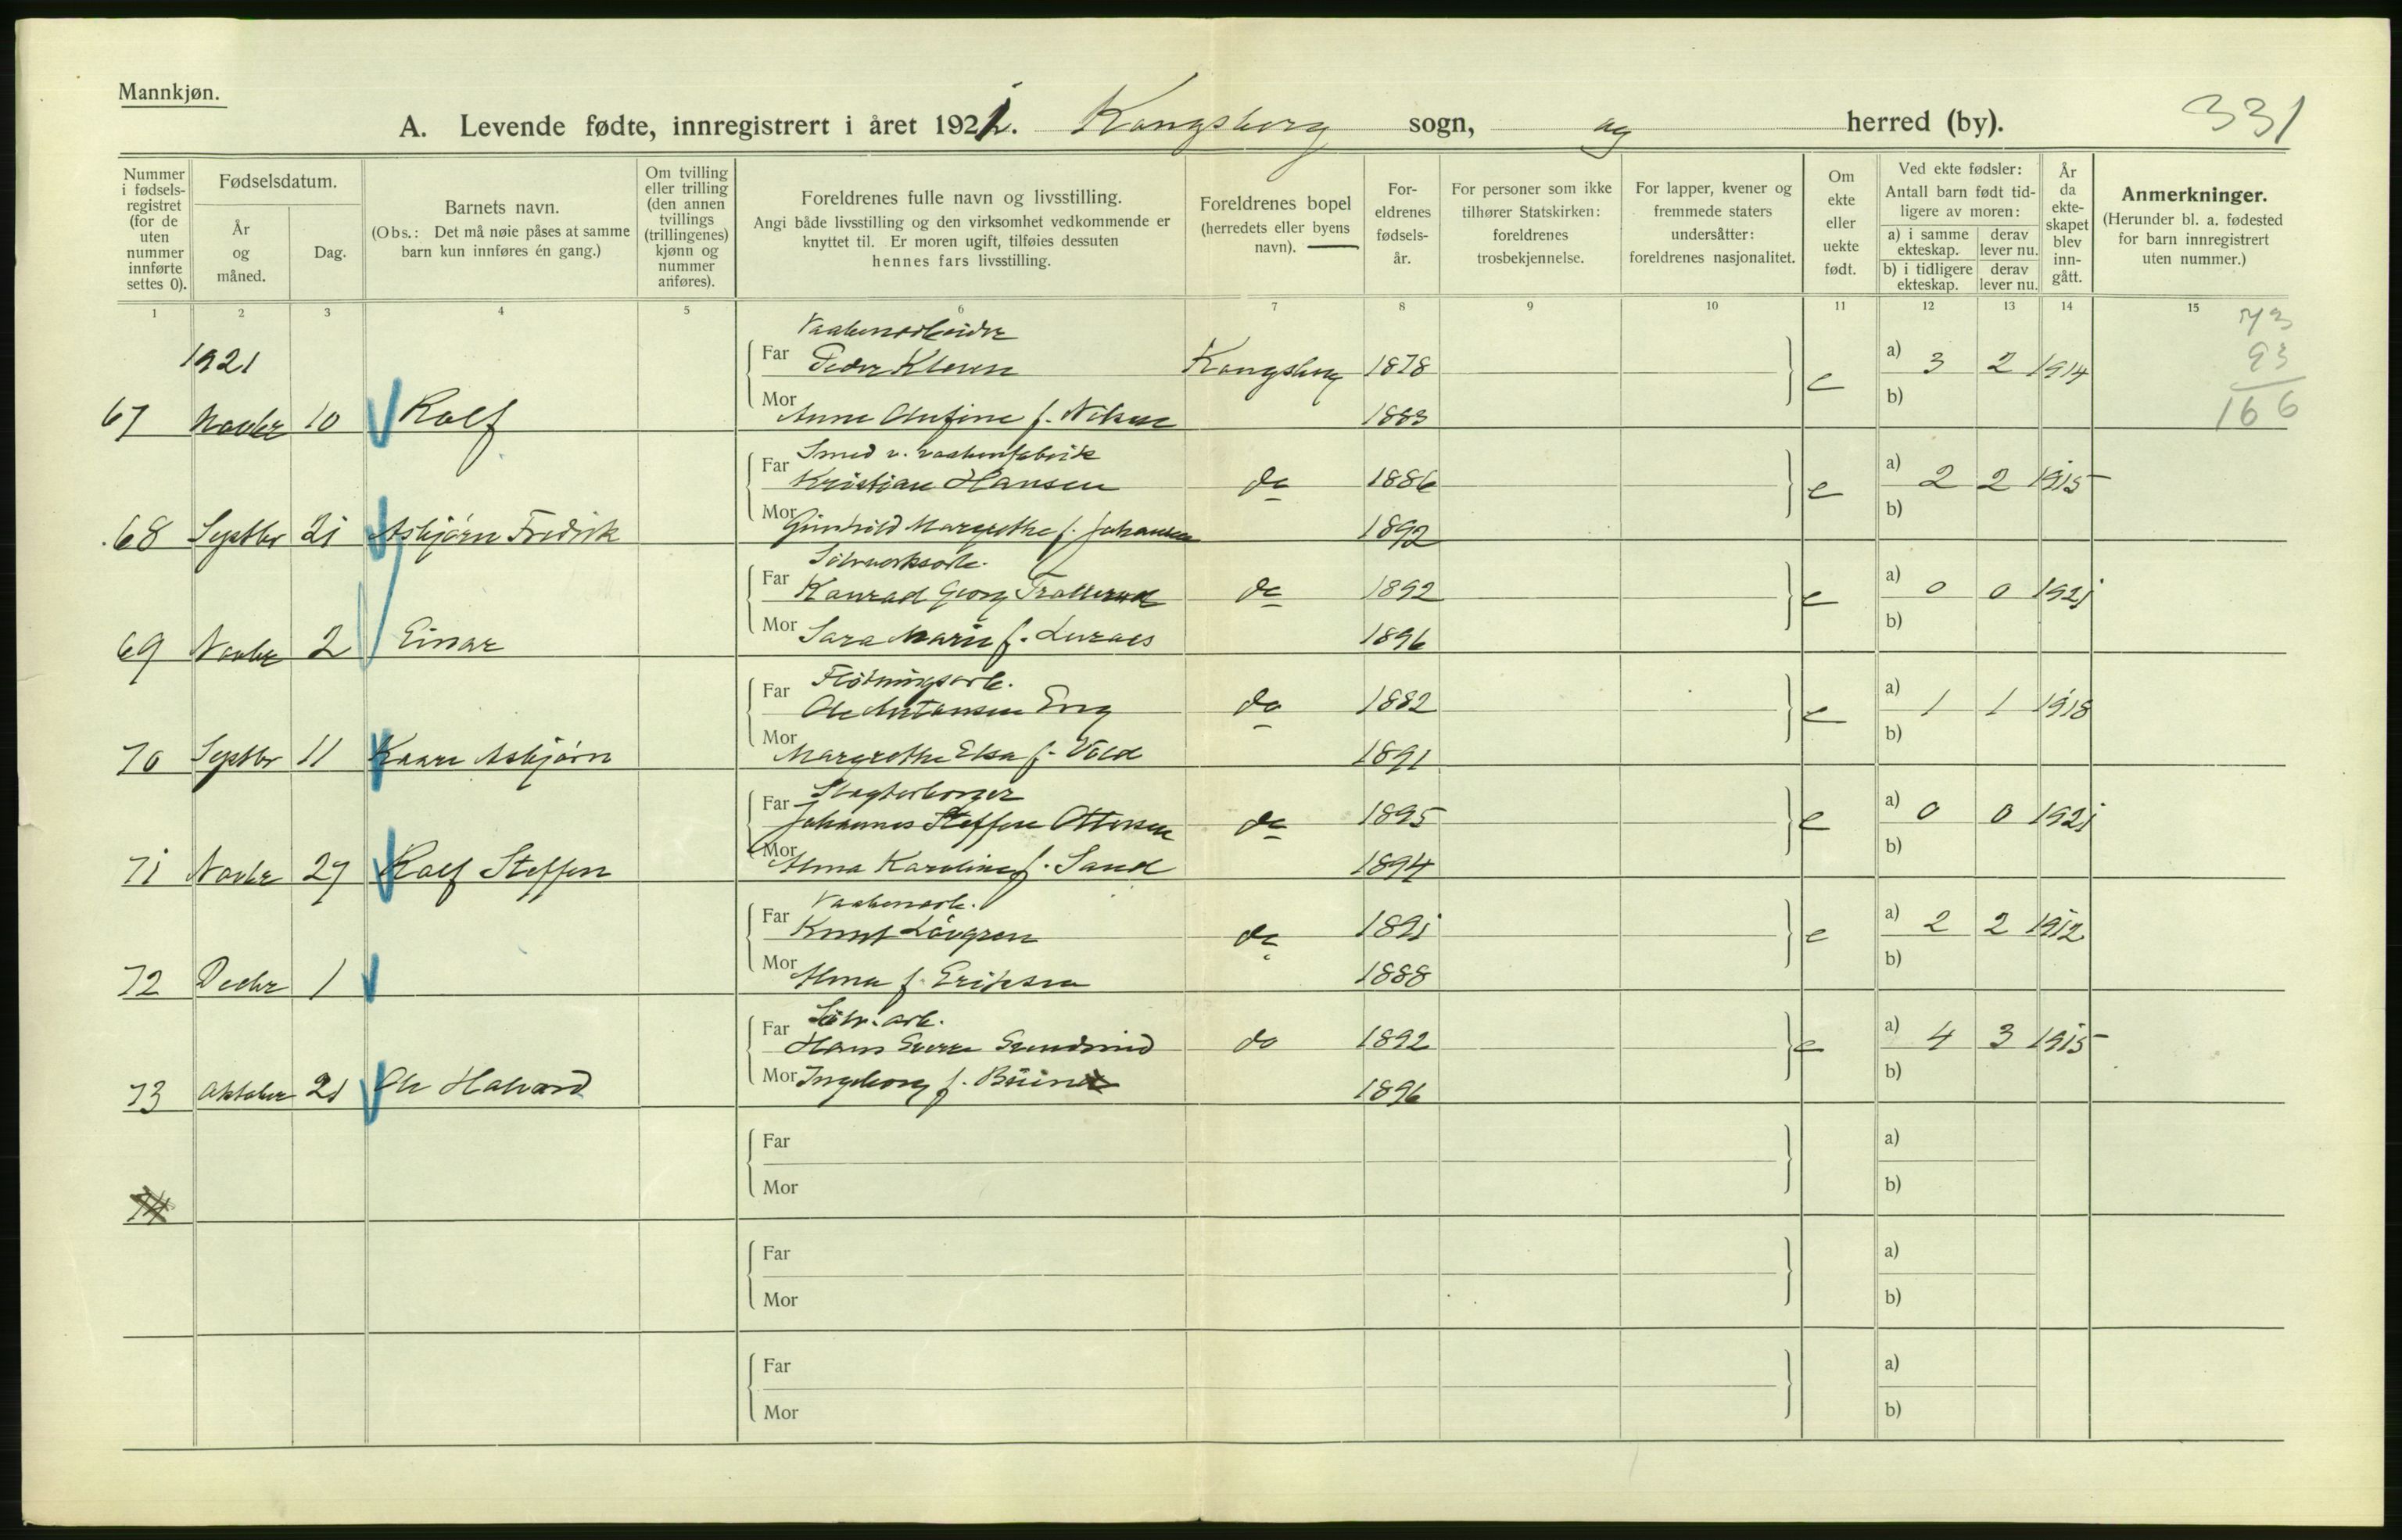 Mannkjøn.
A. Levende fødte, innregistrert i året 1921. Kongsberg sogn, og herred (by). 331
Nummer i fødsels-registret (for de uten nummer innførte settes 0).
Fødselsdatum.
År og måned.
Dag.
Barnets navn.
(Obs.: Det må nøie påses at samme barn kun innføres én gang.)
Om tvilling eller trilling (den annen tvillings (trillingenes) kjønn og nummer anføres).
Foreldrenes fulle navn og livsstilling.
Angi både livsstilling og den virksomhet vedkommende er knyttet til. Er moren ugift, tilføies dessuten hennes fars livsstilling.
Foreldrenes bopel (herredets eller byens navn).
For-eldrenes fødsels-år.
For personer som ikke tilhører Statskirken: foreldrenes trosbekjennelse.
For lapper, kvener og fremmede staters undersåtter: foreldrenes nasjonalitet.
Om ekte eller uekte født.
Ved ekte fødsler: Antall barn født tid-ligere av moren:
a) i samme ekteskap. derav lever nu.
b) i tidligere ekteskap. derav lever nu.
År da ekte-skapet blev inn-gått.
Anmerkninger.
(Herunder bl. a. fødested for barn innregistrert uten nummer.)
1 2 3 4 5 6 7 8 9 10 11 12 13 14 15
73
93
166
1921
Vaabenarbeider
Far Peder Kongsberg 1878 e a) 3 2 1914
67 Novbr 10 Rolf Mor Anne f. Nilsen 1883 b)
Smed v. vaabenfabrik
Far Kristian Hansen do 1886 e a) 2 2 1915
68 Septbr 21 Asbjørn Fredrik Mor Gunhild Margrethe f. Johansen 1892 b)
Sølvverksarb.
Far Konrad Georg Trollerud do 1892 e a) 0 0 1921
69 Novbr 2 Einar Mor Sara Marie f. 1896 b)
Fløtningsarb.
Far Ole Eng do 1882 e a) 1 1 1918
70 Septbr 11 Kaare Asbjørn Mor Margrethe Elsa f. Vold 1891 b)
Far Johannes Steffen Ottersen do 1895 e a) 0 0 1921
71 Novbr 27 Rolf Steffen Mor Alma Karoline f. Sand 1894 b)
Vaabenarb.
Far Knut Lövgren do 1891 e a) 2 2 1912
72 Decbr 1 Mor Alma f. Eriksen 1888 b)
Sølv. arb.
Far Hans Sverre do 1892 e a) 4 3 1915
73 Oktober 21 Ole Halvard Mor Ingeborg f. 1896 b)
Far a)
74 Mor b)
Far a)
Mor b)
Far a)
Mor b)